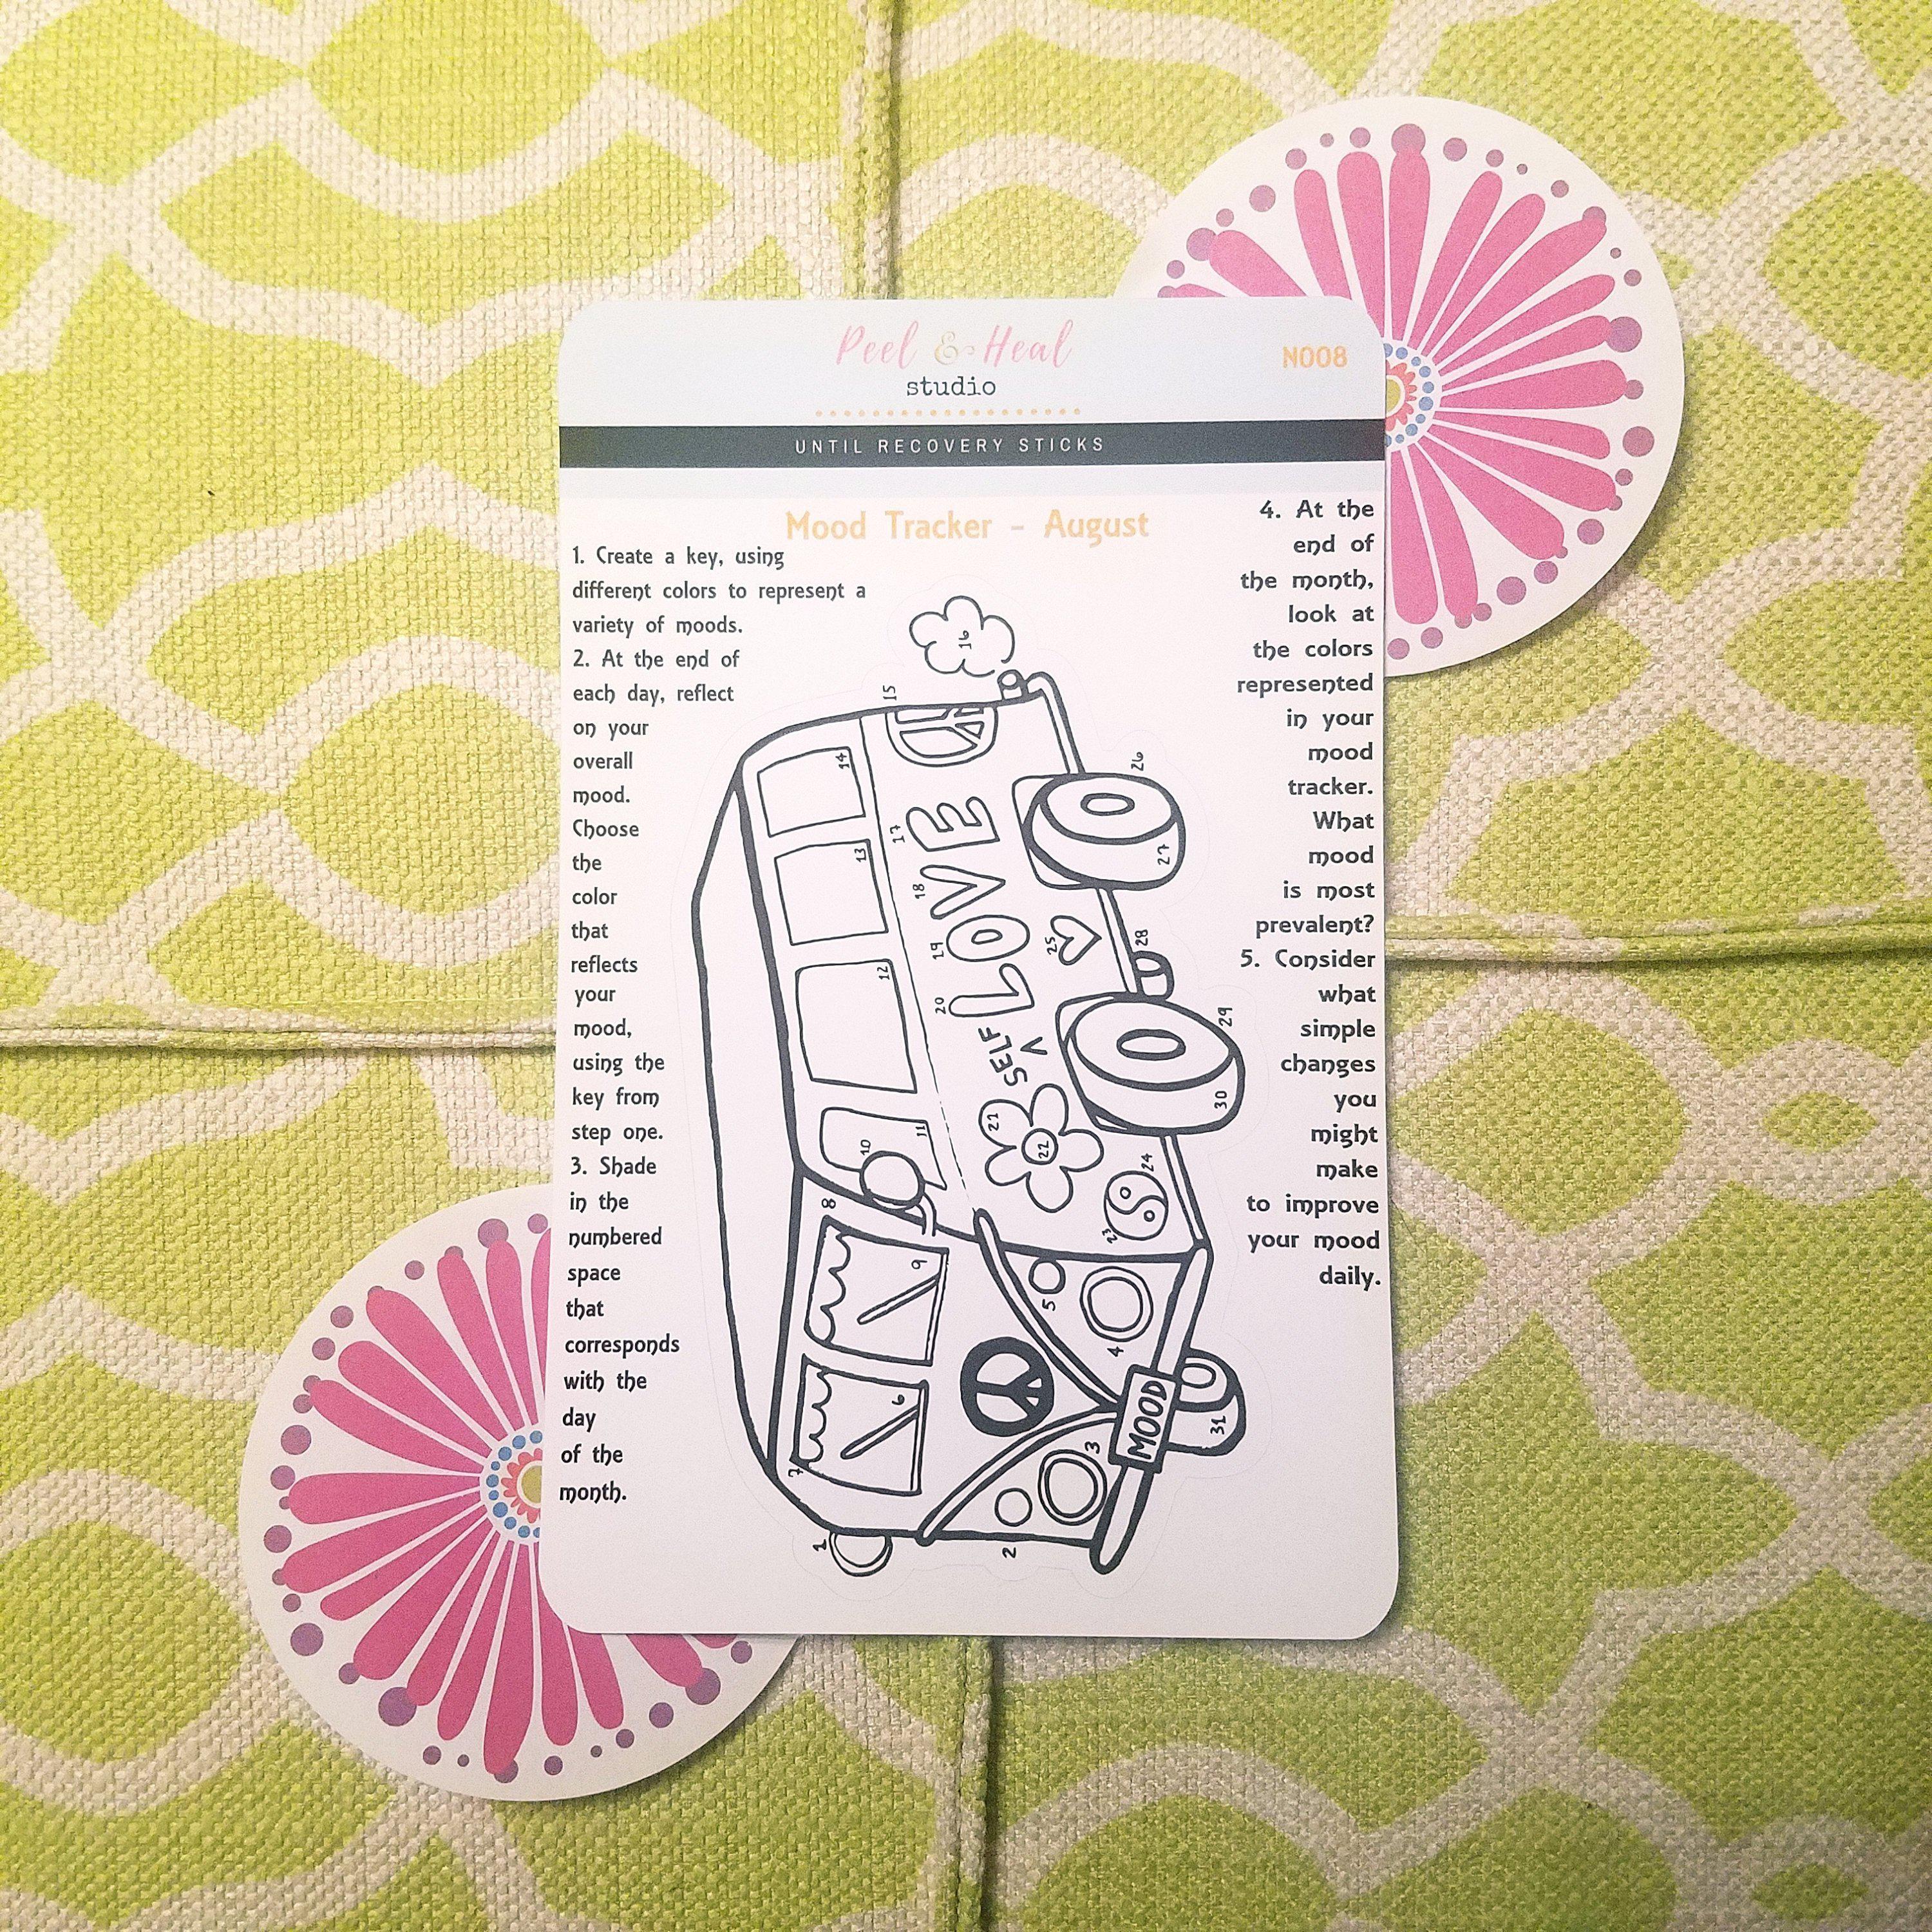 Peel & Heal
studio
N008
UNTIL RECOVERY STICKS
Mood Tracker - August
1. Create a key, using
different colors to represent a
variety of moods.
2. At the end of
each day, reflect
on your
overall
mood.
Choose
the
color
that
reflects
your
mood,
using the
key from
step one.
3. Shade
in the
numbered
space
that
corresponds
with the
day
of the
month.
4. At the
end of
the month,
look at
the colors
represented
in your
mood
tracker.
What
mood
is most
prevalent?
5. Consider
what
simple
changes
you
might
make
to improve
your mood
daily.
SELF
LOVE
MOOD
1
2
3
4
5
6
7
8
9
10
11
12
13
14
15
16
17
18
19
20
21
22
23
24
25
26
27
28
29
30
31